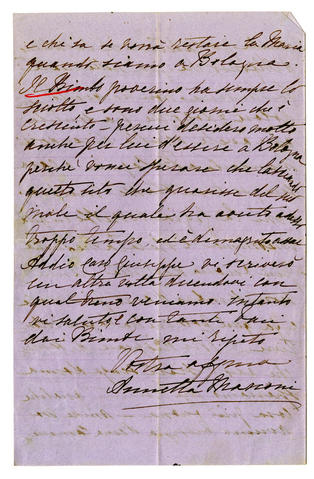 e chi sa se vorrà restare la Maria
quando siamo a Bologna
Il Bimbo poverino ha sempre lo
sciolto e sono due giorni che è
cresciuto - perciò desidero molto
anche per lui d'essere a Bologna
perchè vorrei sperare che
questo tutto che guarisse del suo
male il quale ha avuto
troppo tempo. ed è dimagrato assai
Addio Caro Giuseppe vi scriverò
un altra volta dicendovi con
qual treno veniamo. intanto
vi saluto e con tanti baci
dai Bimbi mi ripeto
Vostra
Annetta Marconi